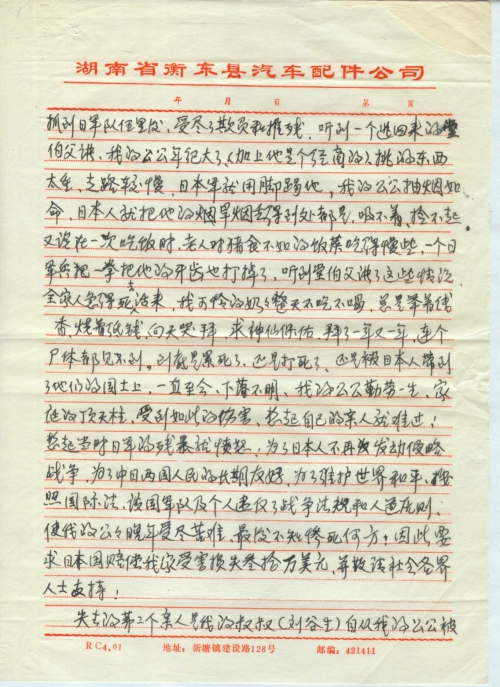 湖南省衡东县汽车配件公司
年 月 日 第 页
抓到日军队伍里后,受尽了欺负和摧残,听到一个逃回来的堂
伯父讲,我的公公年纪大了(加上他是个经商的)挑的东西
太重,走路较慢,日本军就用脚踢他,我的公公抽烟如
命,日本人就把他的烟旱烟丢得到处都是,吸不着,捡不起
又说在一次吃饭时,老人对猪食不如的饭菜吃得慢些,一个日
军兵把一拳把他的牙齿也打掉了,听到堂伯父讲了这些情况
全家人哭得死去活来,我可怜的奶奶整天不吃不喝,总是举着钱
香烧着纸钱,向天哭拜,求神仙保佑,拜了一年又一年,连个
尸体都见不到。到底是累死了,还是打死了,还是被日本人带到
了他们的国土上,一直至今,下落不明,我的公公勤劳一生,家
庭的顶天柱,受到如此的伤害,想起自己的亲人就难过!
想起当时日军的残暴就愤怒!为了日本人不再次发动侵略
战争,为了中日两国人民的长期友好,为了维护世界和平,按
照国际法,该国军队及个人违反了战争法规和人道原则,
使我的公公晚年受尽苦难,最后不知惨死何方,因此要
求日本国赔偿我家受害损失叁拾万美元,并敬请社会各界
人士支持!
失去的第二个亲人是我的叔叔(刘谷生)自从我的公公被
RC4.01 地址:新塘镇建设路128号 邮编:421411